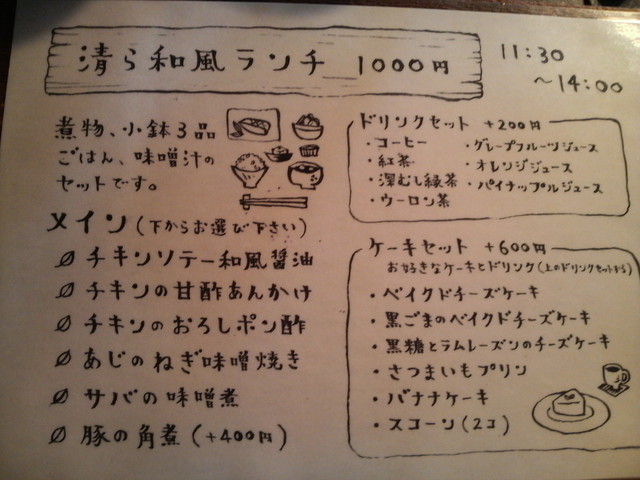 清ら和風ランチ 1000円
11:30
～14:00
煮物、小鉢3品
ごはん、味噌汁の
セットです。
メイン(下からお選び下さい)
チキンソテー和風醤油
チキンの甘酢あんかけ
チキンのおろしポン酢
あじのねぎ味噌焼き
サバの味噌煮
豚の角煮(+400円)
ドリンクセット +200円
・コーヒー
・紅茶
・深むし緑茶
・ウーロン茶
・グレープフルーツジュース
・オレンジジュース
・パイナップルジュース
ケーキセット +600円
お好きなケーキとドリンク(上のドリンクセットから)
・ベイクドチーズケーキ
・黒ごまのベイクドチーズケーキ
・黒糖とラムレーズンのチーズケーキ
・さつまいもプリン
・バナナケーキ
・スコーン(2コ)